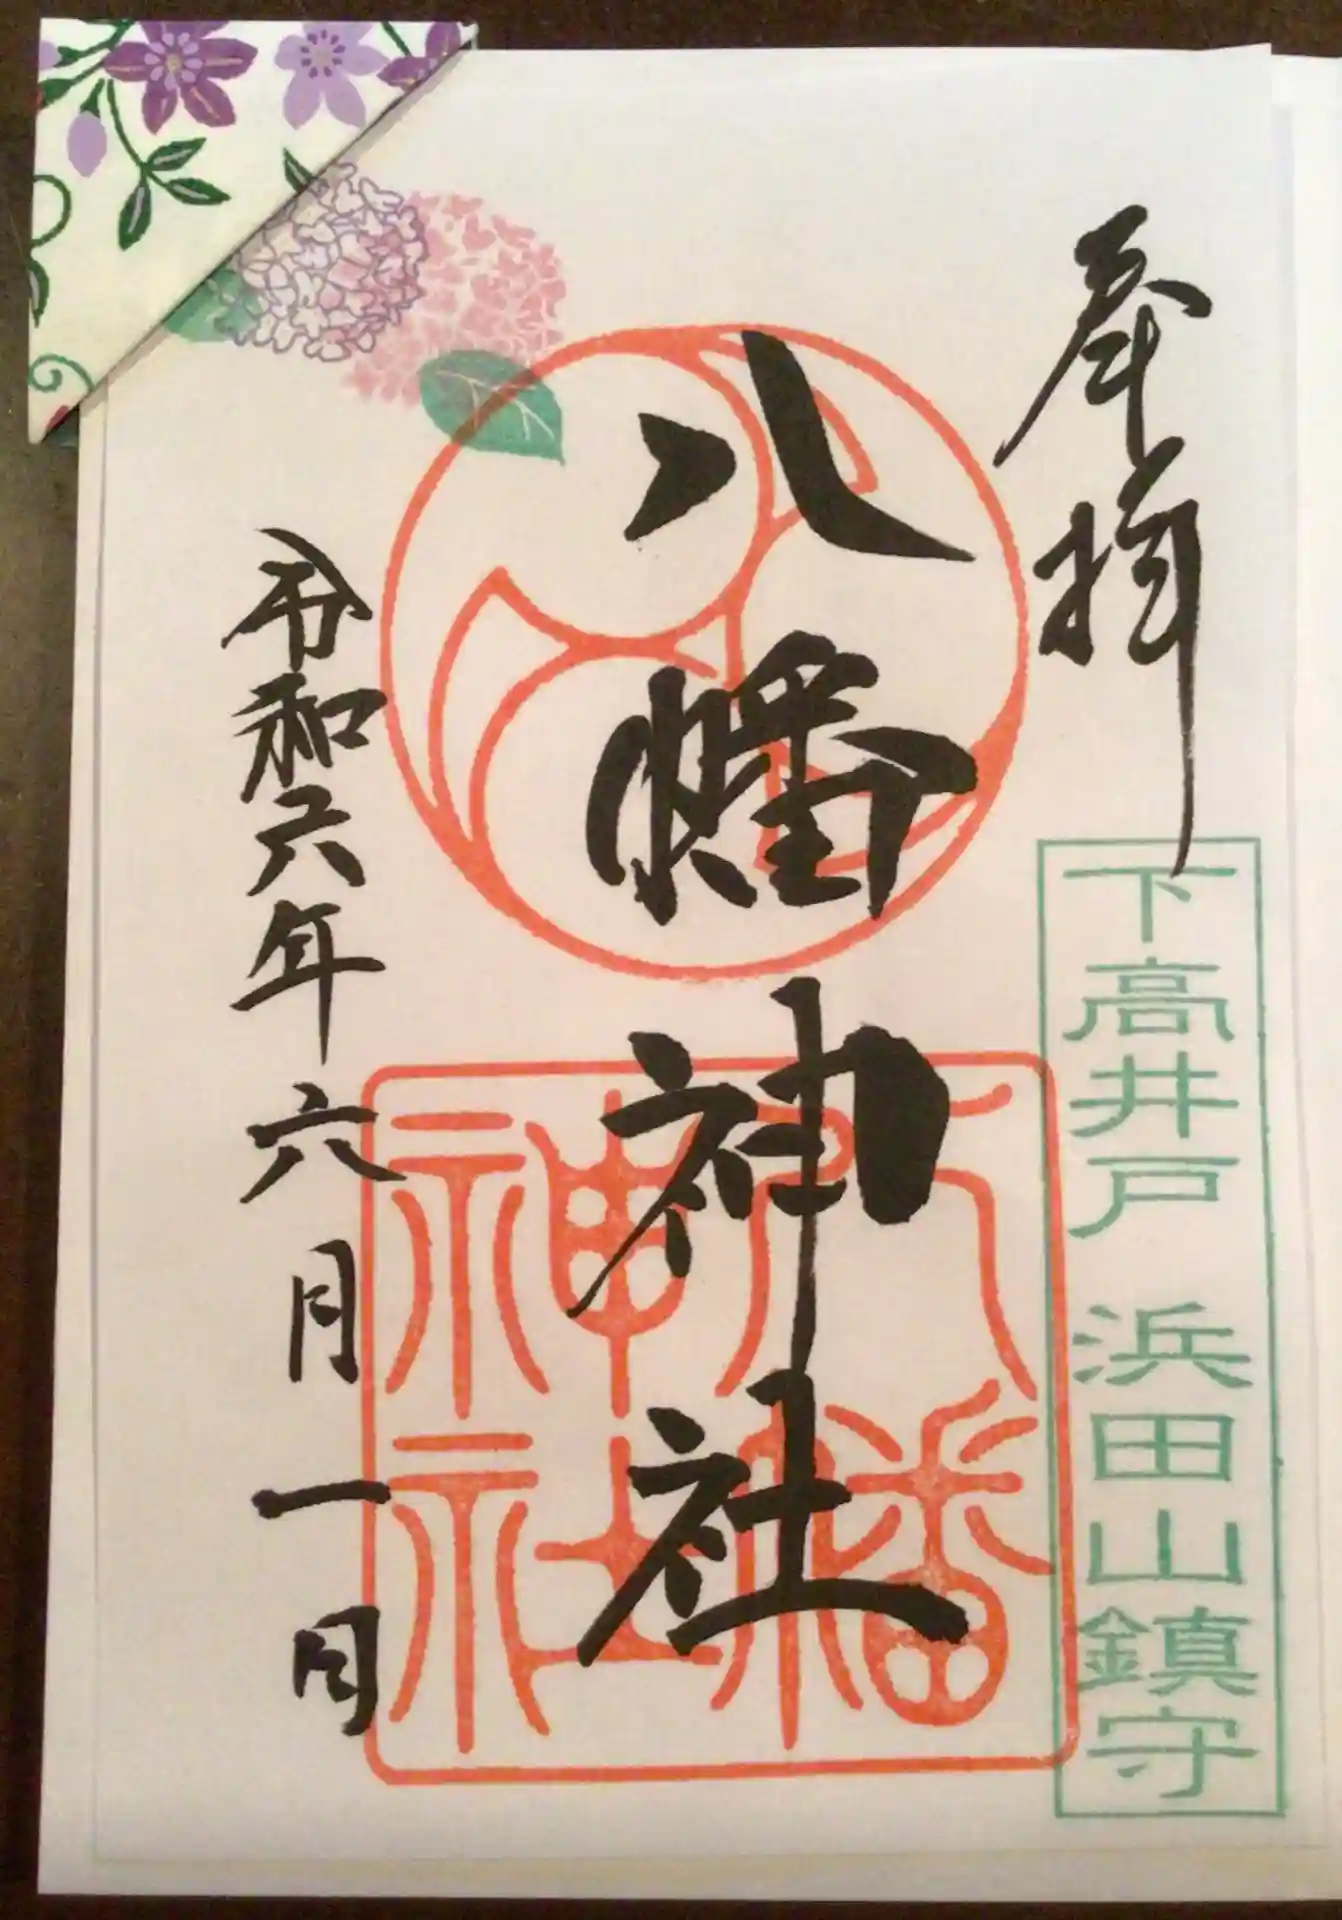 奉拝
下高井戸 浜田山鎮守
八幡神社
八幡
神社
令和六年六月一日